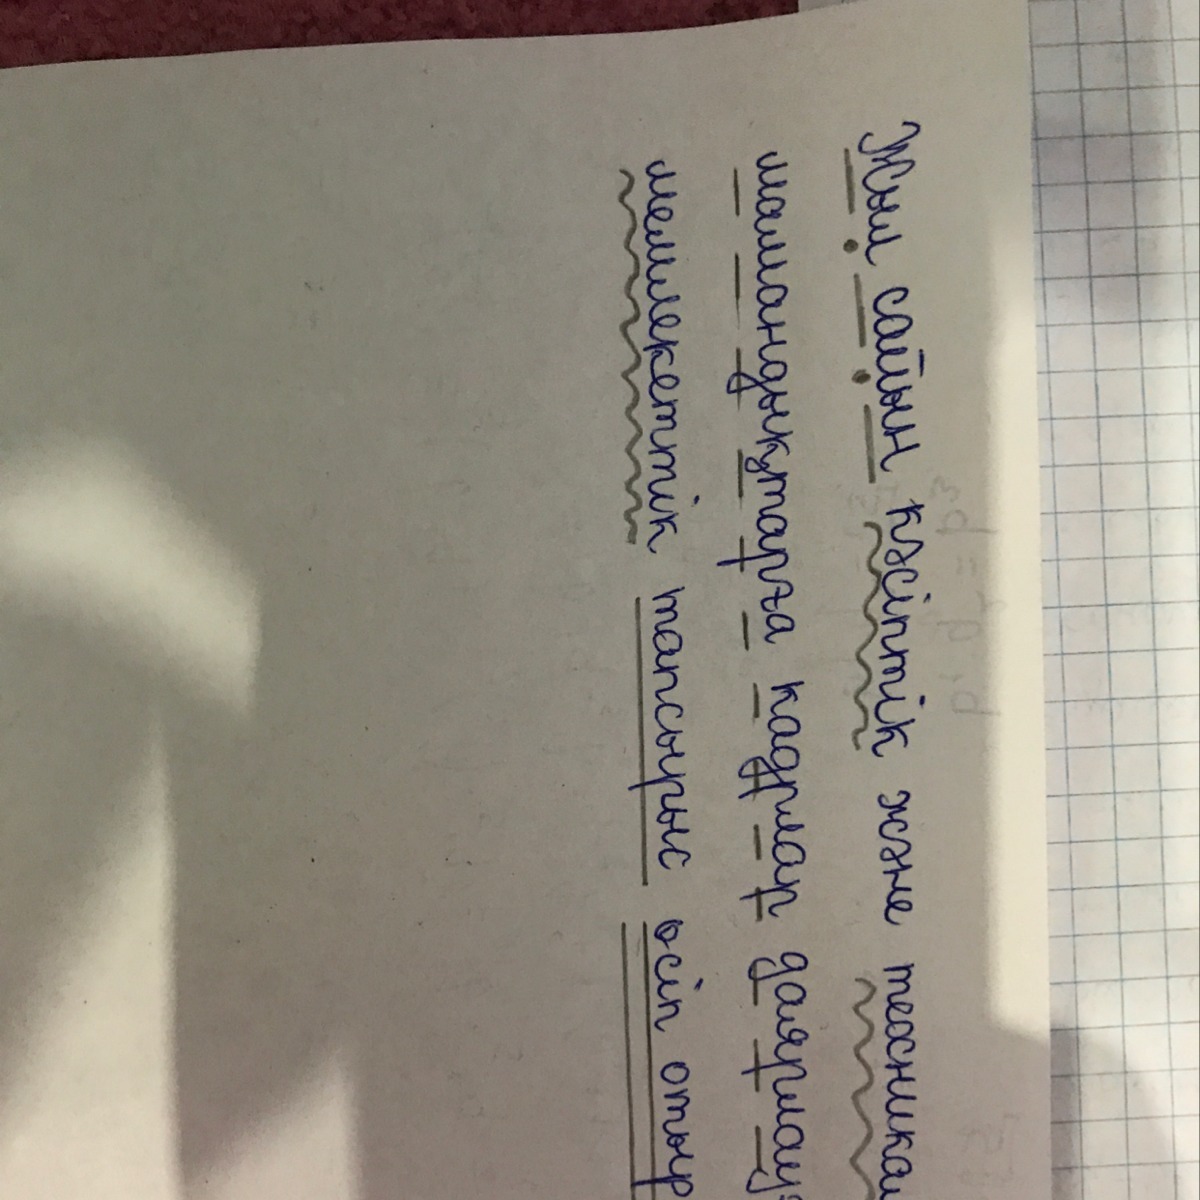 Жыл сайын кәсіптік және техника
мамандықтарға кадрлар даярлау
мемлекеттік тапсырыс өсіп отыр